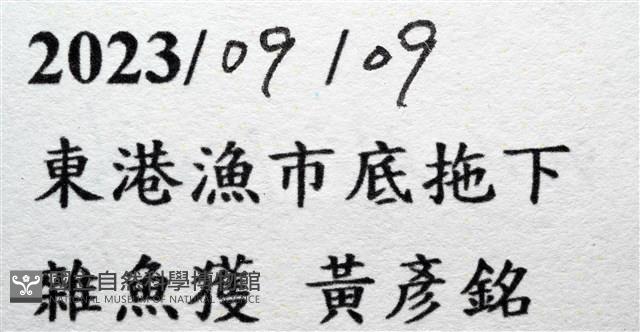 2023/09/09
東港漁市底拖下
雜魚獲 黃彥銘
國立自然科學博物館
NATIONAL MUSEUM OF NATURAL SCIENCE